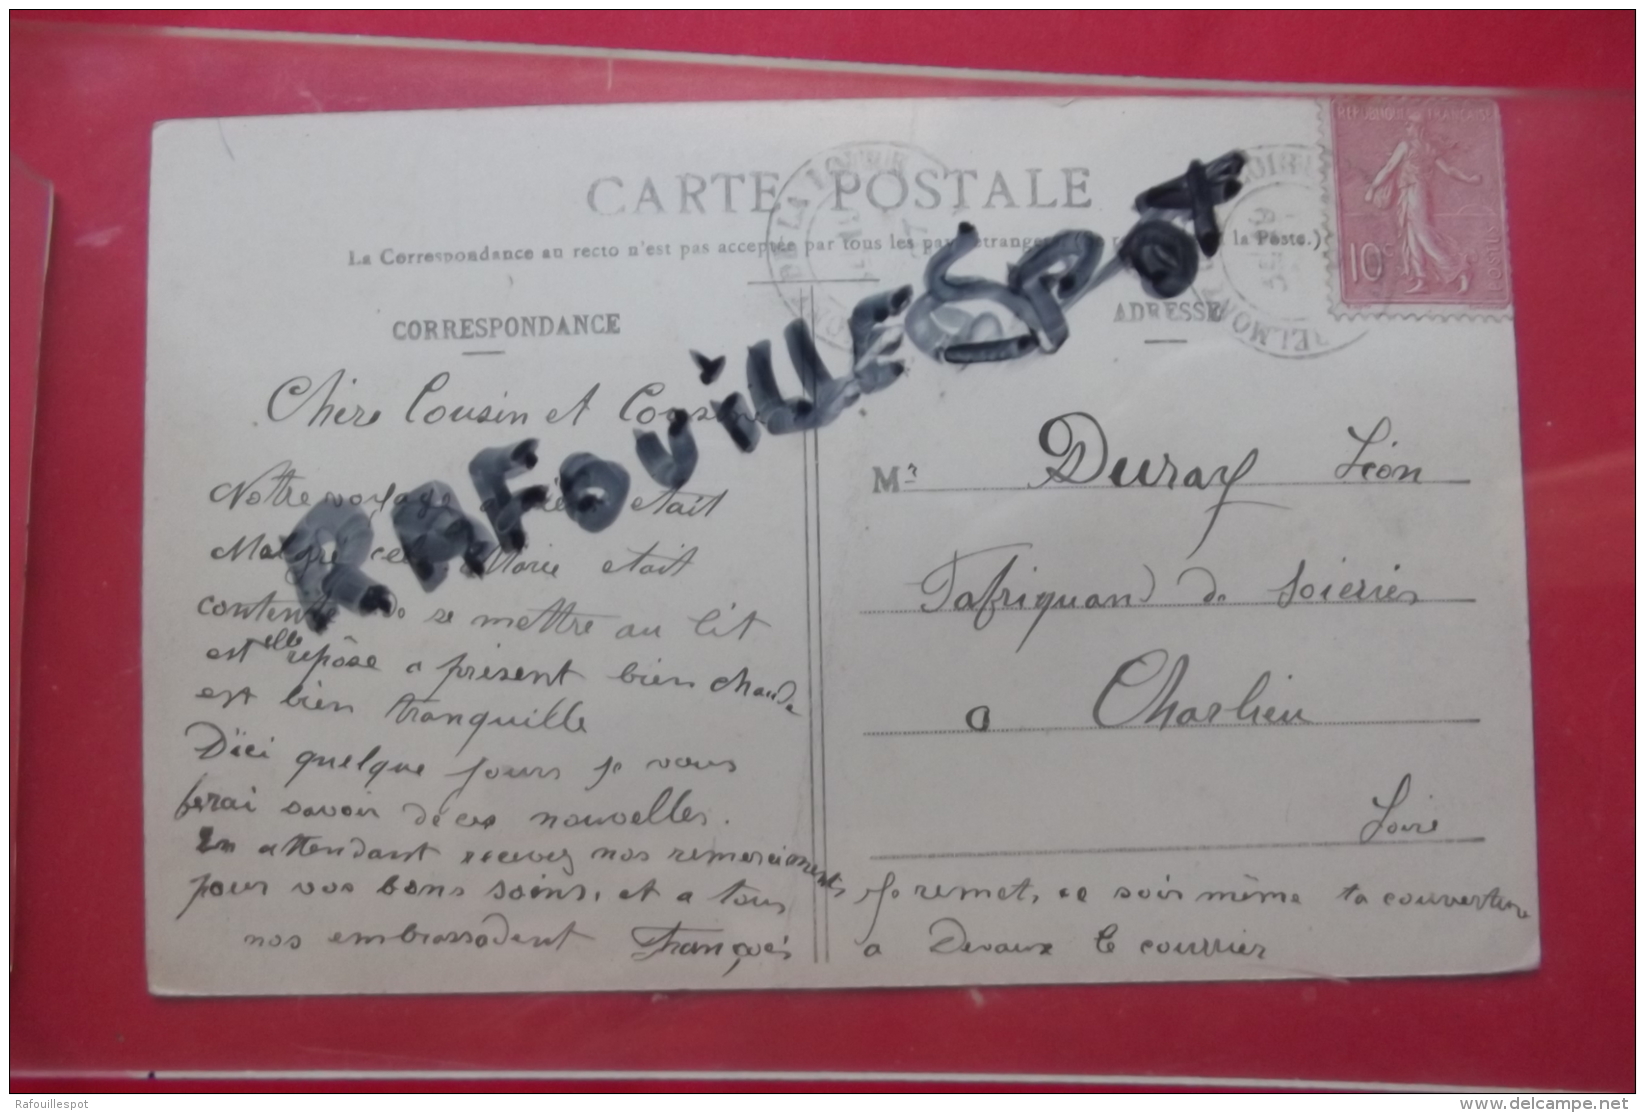 CARTE POSTALE
La Correspondance au recto n'est pas acceptée par tous les pays étrangers. la Poste.)
CORRESPONDANCE
ADRESSE
RAFOUILLESPOT
REPUBLIQUE FRANÇAISE
10c
POSTES
BELMONT LOIRE
DE LA LOIRE
Chère Cousin et Cousine
Notre voyage était
Malgré cela Marie etait
contente de se mettre au lit
elle
est repôse a présent bien chaude
est bien tranquille
Dïci quelque jours je vous
ferai savoir de ces nouvelles.
En attendant recevez nos remerciments
pour vos bons soins, et a tous
nos embrassadent François
Mr Duray Léon
Fafriquand de Soieries
a Charlieu
Loire
Je remet, ce soir même ta couverture
a Devaux le courrier
Rafouillespot
www.delcampe.net